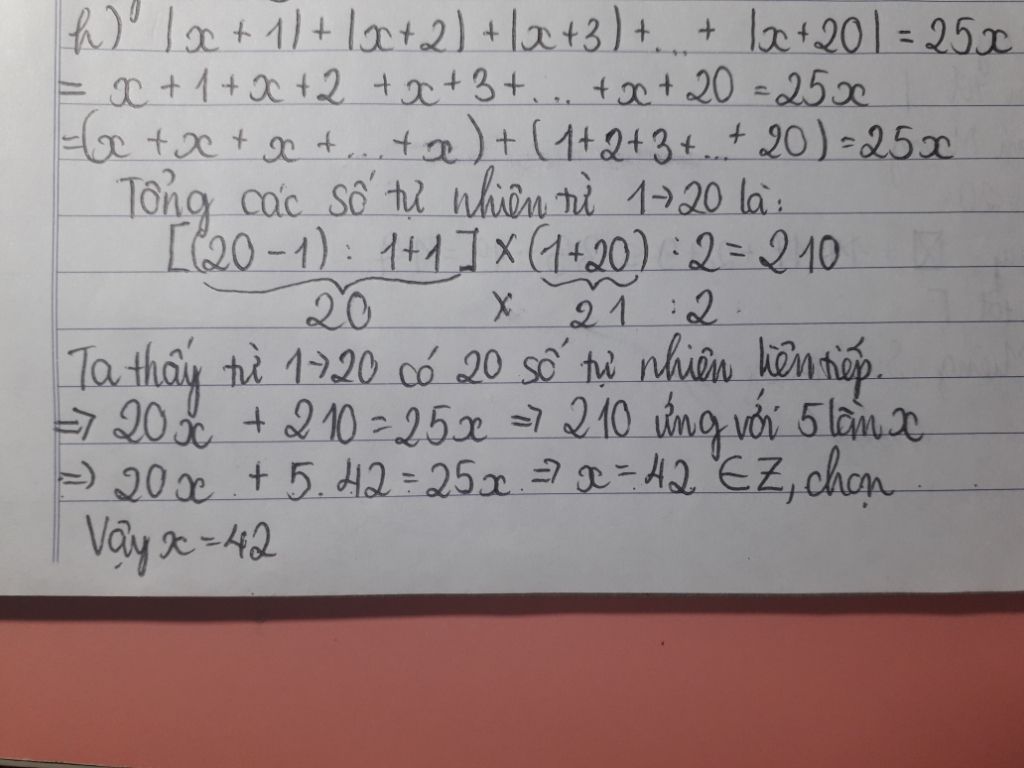 h) |x + 1| + |x + 2| + |x + 3| + ... + |x + 20| = 25x
= x + 1 + x + 2 + x + 3 + ... + x + 20 = 25x
= (x + x + x + ... + x) + (1 + 2 + 3 + ... + 20) = 25x
Tổng các số tự nhiên từ 1 → 20 là:
[(20 - 1) : 1 + 1] × (1 + 20) : 2 = 210
20 × 21 : 2
Ta thấy từ 1 → 20 có 20 số tự nhiên liên tiếp.
⇒ 20x + 210 = 25x ⇒ 210 ứng với 5 lần x
⇒ 20x + 5. 42 = 25x ⇒ x = 42 ∈ Z, chọn
Vậy x = 42